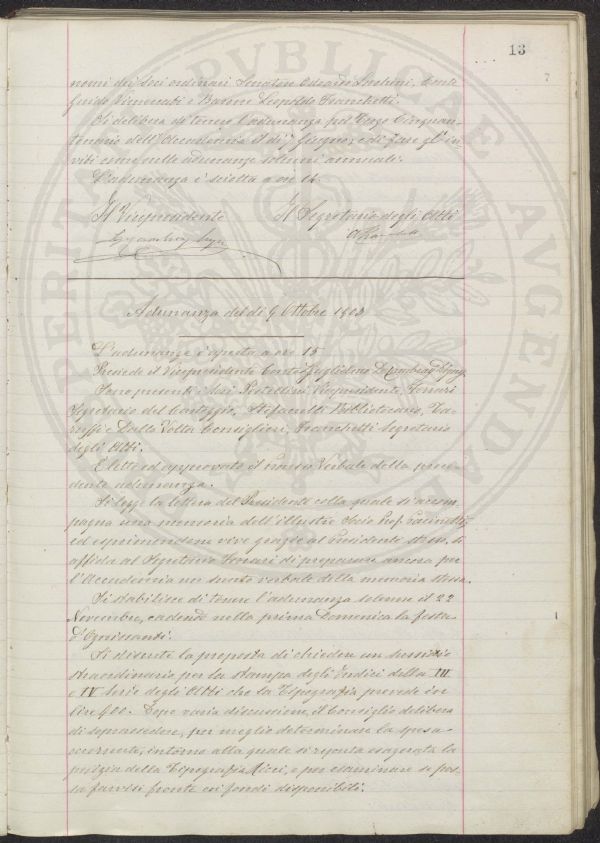 13
7
nomi dei Soci ordinari Senatore Odoardo Luchini, Conte
Guido Vimercati e Barone Leopoldo Franchetti.
Si delibera di tenere l'adunanza pel Terzo Cinquan-
tenario dell'Accademia il dì 7 Giugno, e di fare gl'in-
viti come nelle adunanze solenni annuali.
L'adunanza è sciolta a ore 16.
Il Vicepresidente Il Segretario degli Atti
Adunanza del dì 9 Ottobre 1903
L'adunanza è aperta a ore 15
Presiede il Vicepresidente Conte Guglielmo De Cambray Digny
Sono presenti i Soci Pestellini Vicepresidente, Ferrari
Segretario del Carteggio, Stefanelli Bibliotecario, Ta-
ruffi e Dalla Volta Consiglieri, Franchetti Segretario
degli Atti.
È letto ed approvato il processo Verbale della prece-
dente adunanza.
Si legge la lettera del Presidente colla quale si accom-
pagna una memoria dell'illustre Socio Prof. Pacinotti
ed esprimendone vive grazie al Presidente stesso, si
affida al Segretario Ferrari di preparare ancora per
l'Accademia un sunto verbale della memoria stessa.
Si stabilisce di tenere l'adunanza solenne il 22
Novembre, cadendo nella prima Domenica la festa
d'Ognissanti.
Si discute la proposta di chiedere un sussidio
straordinario per la stampa degli Indici della III
e IV Serie degli Atti che la Tipografia prevede in
lire 900. Dopo varia discussione, il Consiglio delibera
di soprassedere, per meglio determinare la spesa
occorrente, intorno alla quale si reputa esagerata la
perizia della Tipografia Ricci, e per esaminare se pos-
sa farvisi fronte coi fondi disponibili.
PERITAT
PVBLICAE
AVGENDAE